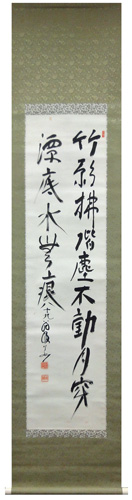 竹影拂階塵不動月穿
潭底水無痕